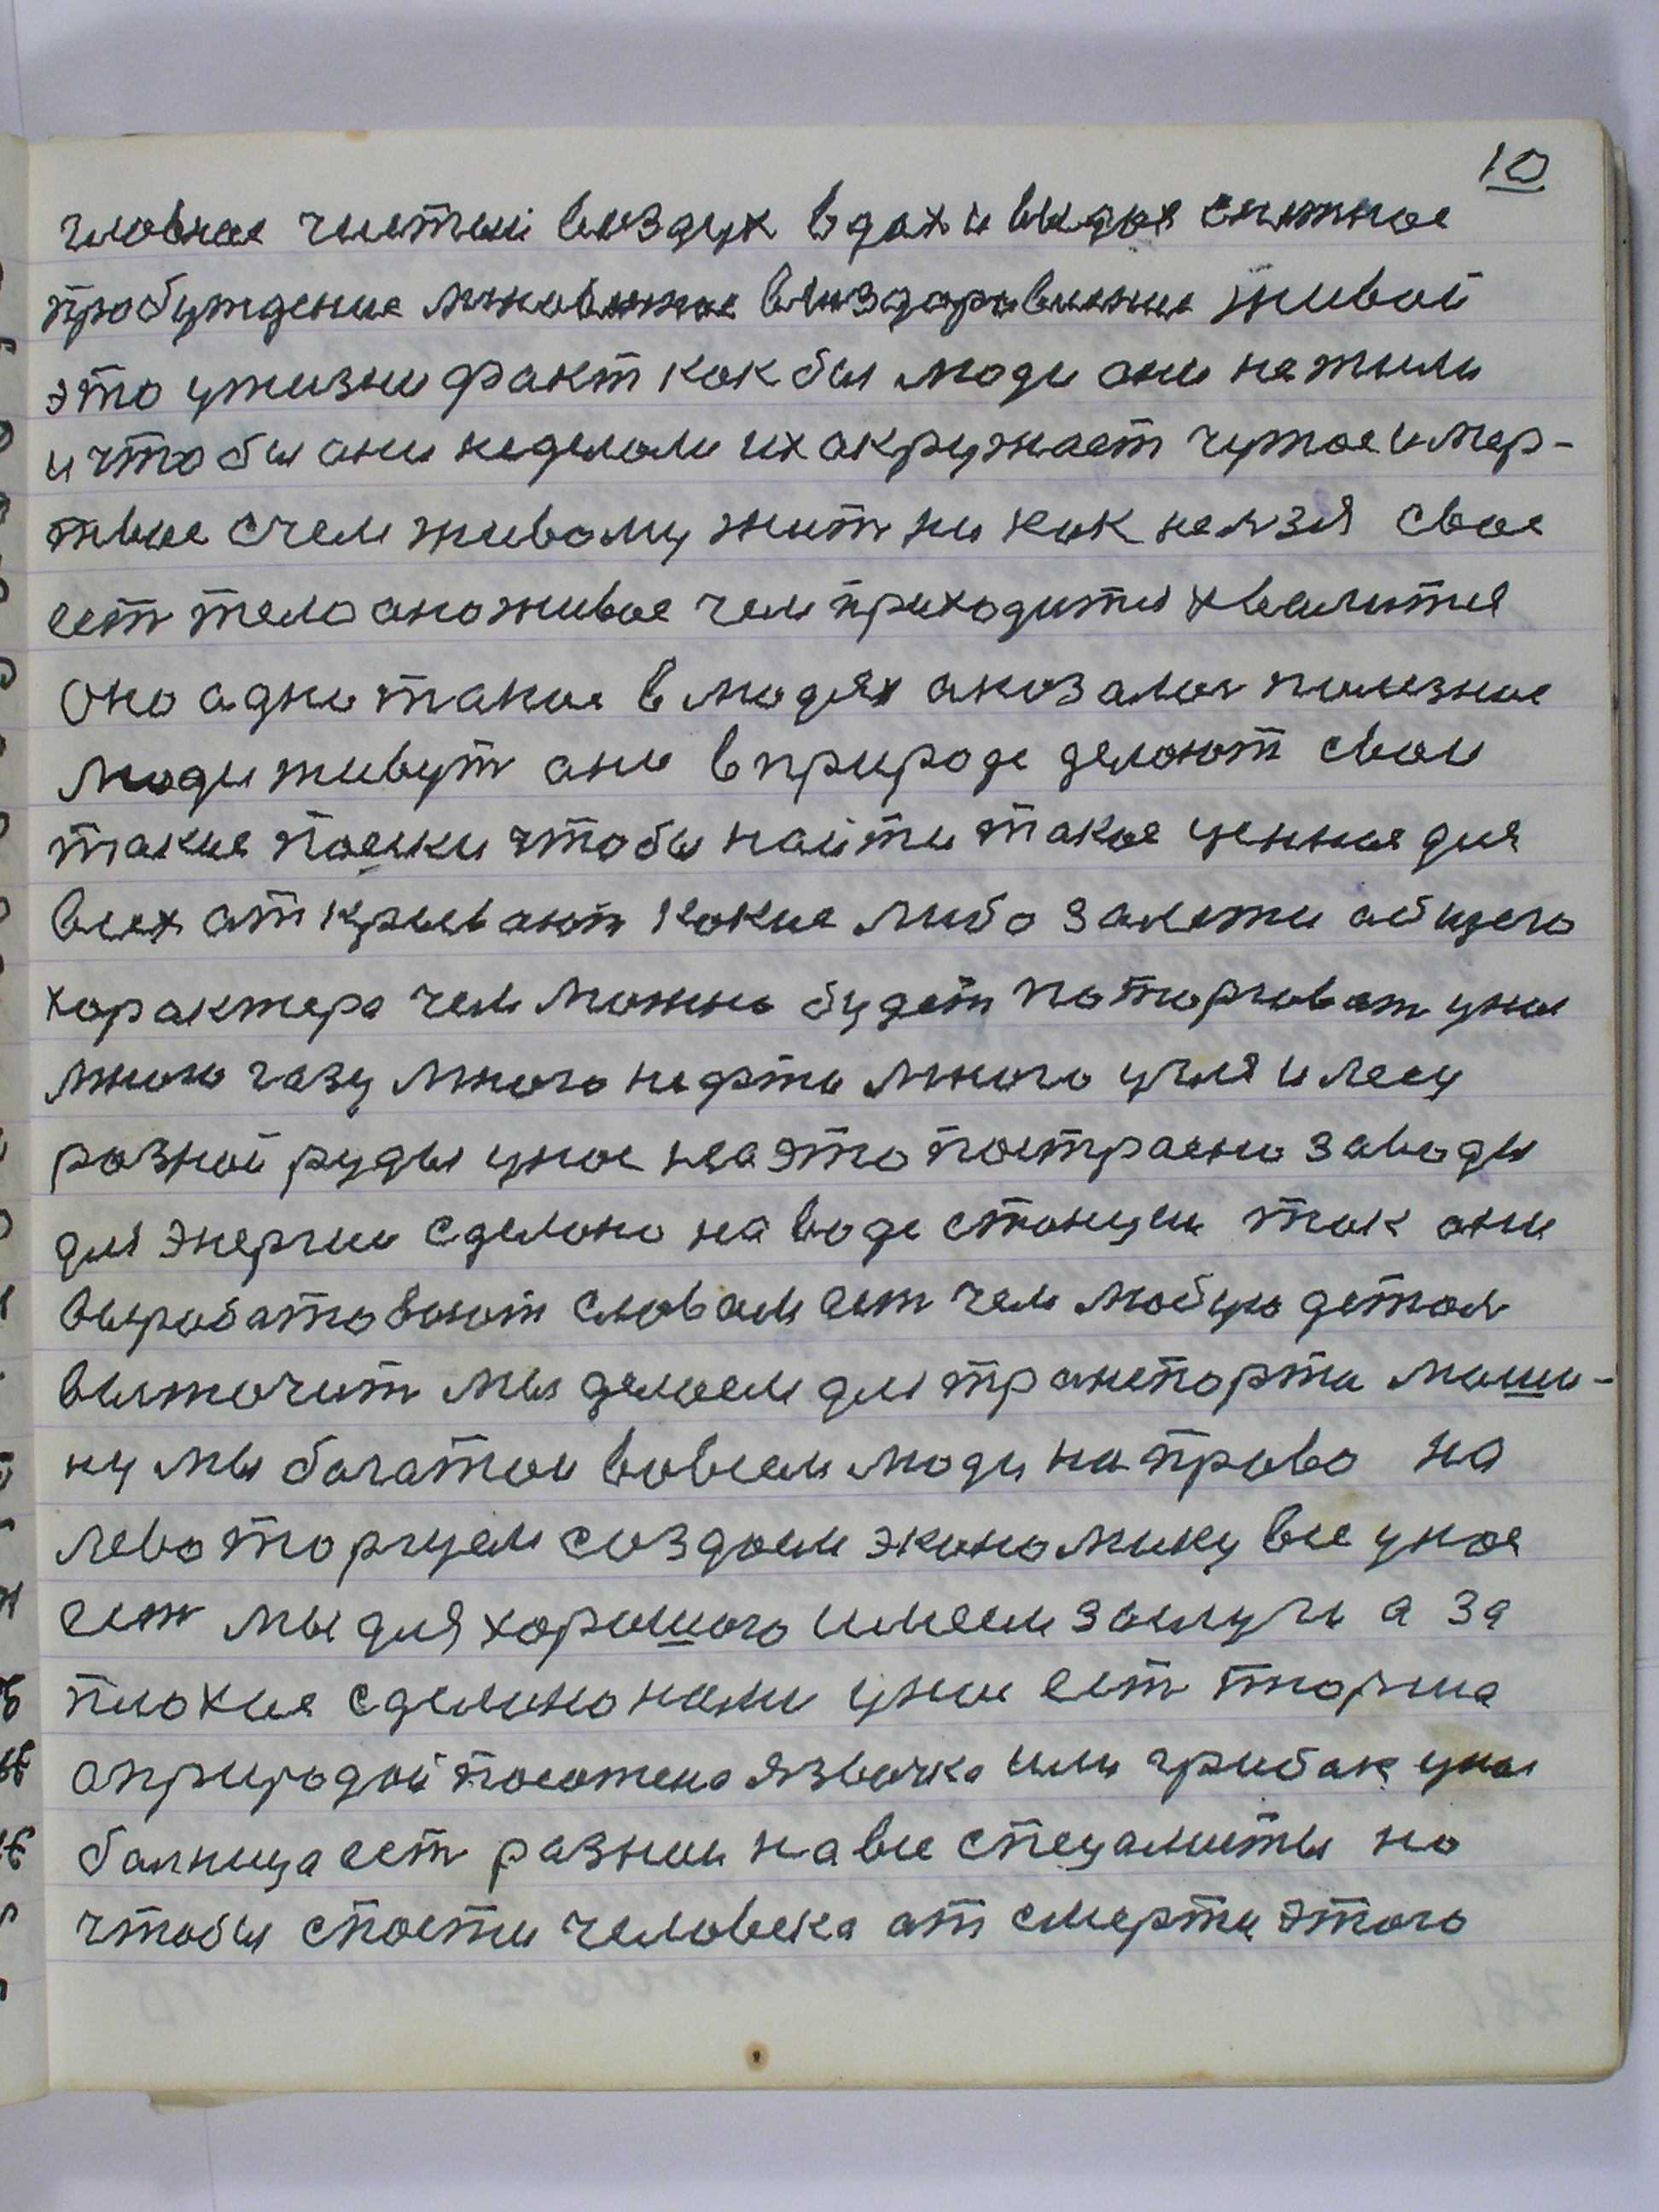 10
главное чистый воздух вдох и выдох снежное
пробуждение мгновенное выиздоравление живой
это ужизни факт какбы люди они не жыли
и что бы они неделали их акружает чужое и мер-
твое счем живому жит ни как нелзя свое
ест тело оно живое чем приходится хвалится
Оно адно такое в людях аказалос полезное
люди живут они в природе делают свои
такие поески чтобы найти такое ценное для
всех аткрывают какие либо залежи абщего
характера чем можно будет поторговат унас
много газу много нефти много угля и лесу
разной руды унас на это построено заводы
для энергии сделано на воде станции так они
вырабатовают словам ест чем любую детал
выточит мы делаем для транспорта маши-
ну мы багатои вовсем люди на право на
лево торгуем создаем экономику все унас
ест мы для хорошого имеем заслуги а за
плохие сделано нами унас ест тюрма
априродой посажена язвачка или грибак унас
балница ест разнои на все специалисты но
чтобы спасти человека ат смерти этого